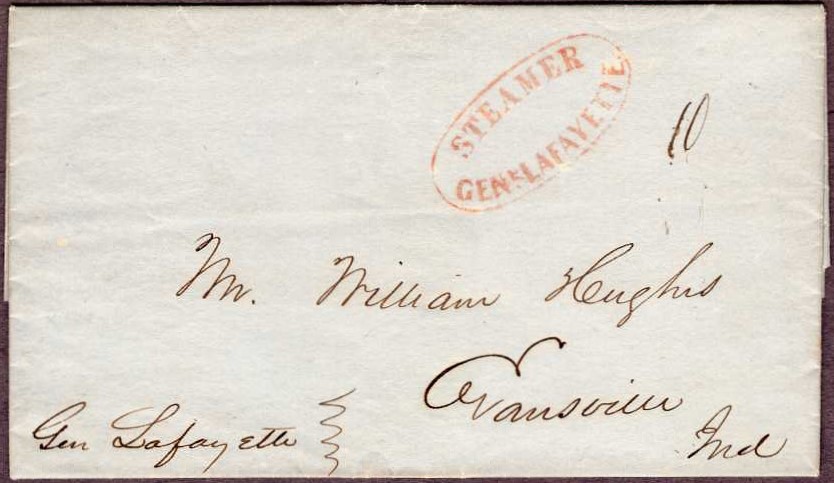 STEAMER
GENL LAFAYETTE
10
Mr. William Hughes
Evansville
Ind
Gen Lafayette